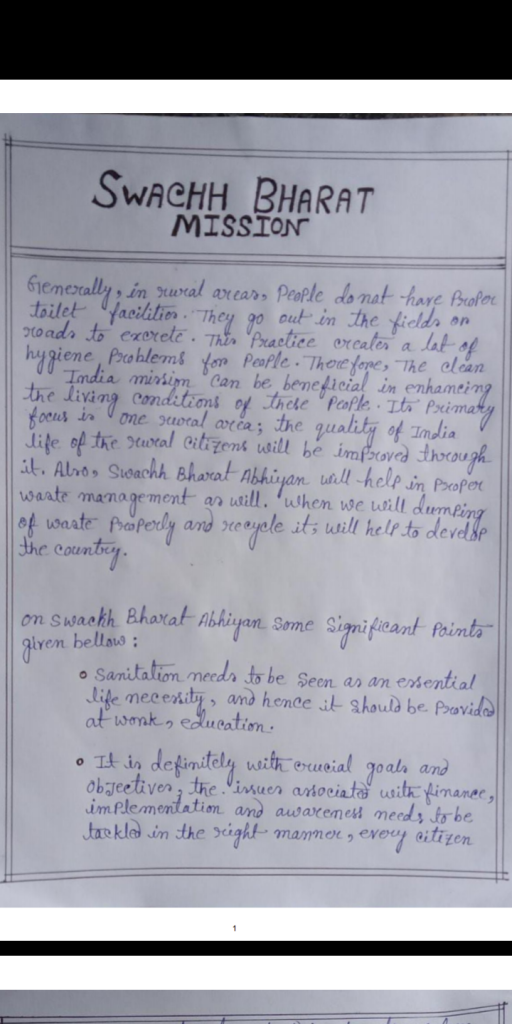 SWACHH BHARAT
MISSION
Generally, in rural areas, People do not have Proper
toilet facilities. They go out in the fields or
roads to excrete. This Practice creates a lot of
hygiene Problems for People. Therefore, The clean
India mission can be beneficial in enhancing
the living conditions of these People. Its Primary
focus is one rural area; the quality of India
life of the rural citizens will be improved through
it. Also, Swachh Bharat Abhiyan will help in Proper
waste management as will. When we will dumping
of waste Properly and recycle it, will help to develop
the country.
on Swachh Bharat Abhiyan some significant Points
given bellow:
• Sanitation needs to be seen as an essential
life necessity, and hence it should be Provided
at work, education.
• It is definitely with crucial goals and
objectives, the issues associated with finance,
implementation and awareness needs to be
tackled in the right manner, every citizen
1